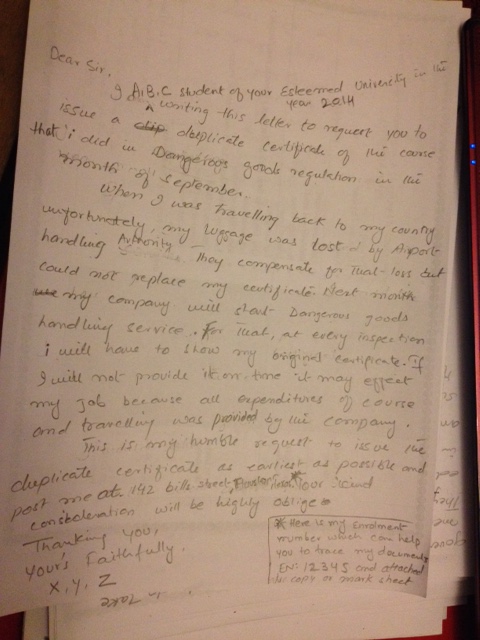 Dear Sir,
I A,B,C student of your Esteemed University in the
year 2014
writing this letter to request you to
issue a duplicate certificate of the course
that i did in Dangerous goods regulation in the
month of september.
When I was travelling back to my country
unfortunately, my luggage was lost by Airport
handling Authority They compensate for that loss but
could not replace my certificate. Next month
my company will start Dangerous goods
handling service. For that, at every inspection
i will have to show my original certificate. If
I will not provide it on time it may effect
my job because all expenditures of course
and travelling was provided by the company.
This is my humble request to issue the
duplicate certificate as earliest as possible and
post me at 142 bills street, Your kind
consideration will be highly oblige
Thanking you,
your's Faithfully.
X, Y, Z
* Here is my Enrolment
number which can help
you to trace my documents
EN: 12345 and attached
copy of mark sheet